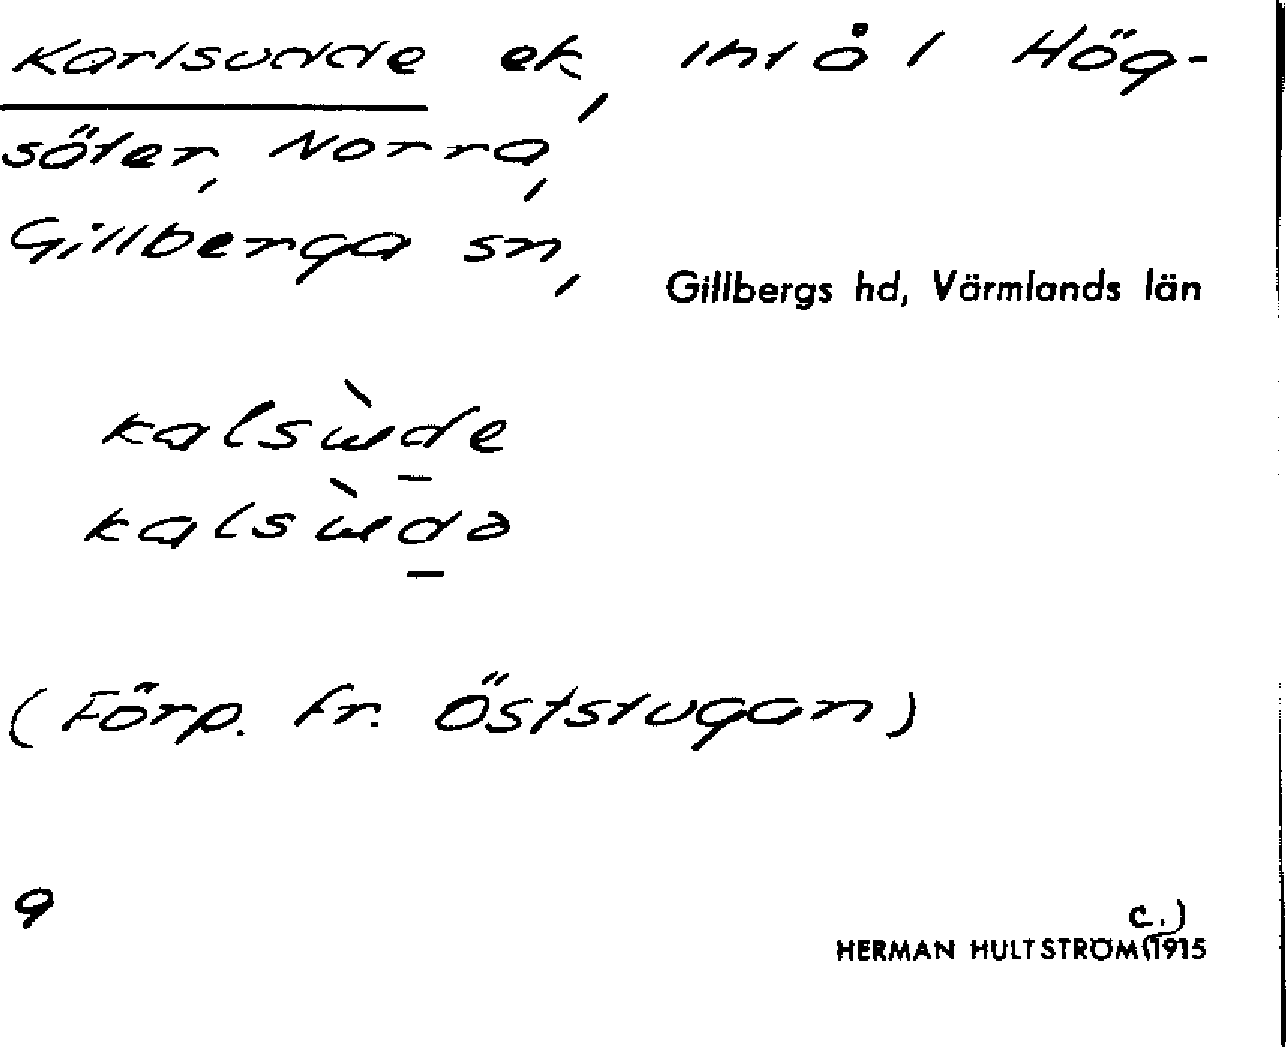 Karlsudde ek, int å l Hög-
säter, Norra,
Gillberga sn,
Gillbergs hd, Värmlands län
kalsùde
kalsùdə
(Förp. fr. Öststugan)
9
c.)
HERMAN HULTSTRÖM (1915